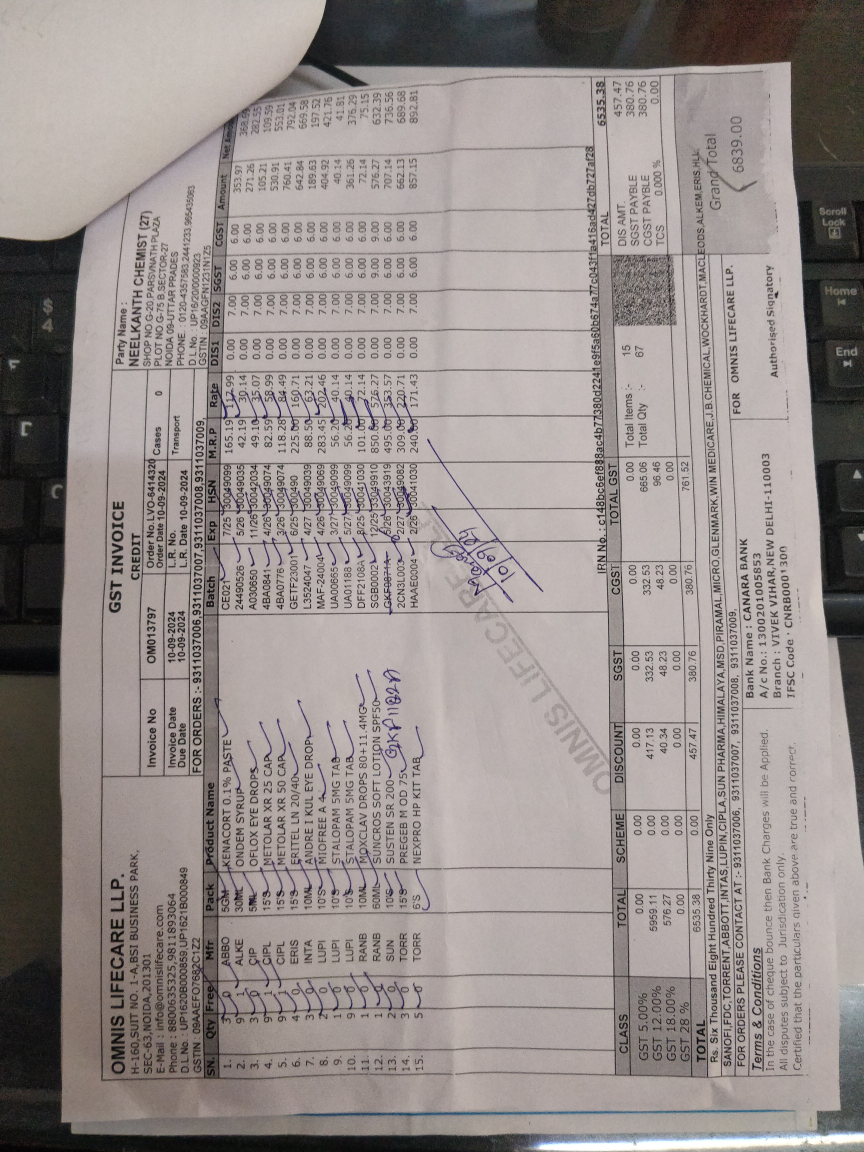 GST INVOICE
CREDIT
OMNIS LIFECARE LLP.
H-160,SUIT NO. 1-A,BSI BUSINESS PARK,
SEC-63,NOIDA,201301
E-Mail : info@omnislifecare.com
Phone : 8800635325,9811893064
D.L.No : UP1620B000859,UP1621B000849
GSTIN : 09AAEFO7682C1Z2
Invoice No OM013797
Order No.LVO-6414320 Cases 0
Order Date 10-09-2024
Invoice Date 10-09-2024 L.R. No. Transport
Due Date 10-09-2024 L.R. Date 10-09-2024
FOR ORDERS :- 9311037006,9311037007,9311037008,9311037009,
Party Name :
NEELKANTH CHEMIST (27)
SHOP NO.G-20,PARSVNATH PLAZA
PLOT NO.G-75 B,SECTOR-27
NOIDA 09-UTTAR PRADES
PHONE : 0120-4357583,2441233
D.L.No. :
GSTIN : 09AAGFN1231N1Z5
SN. Qty Free Mfr Pack Product Name Batch Exp HSN M.R.P Rate DIS1 DIS2 SGST CGST Amount Net
1. 3 0 ABBO 5GM KENACORT 0.1% PASTE CE021 7/25 30049099 165.19 117.99 0.00 7.00 6.00 6.00 353.97
2. 9 1 ALKE 30ML ONDEM SYRUP 24490526 5/26 30049035 42.19 30.14 0.00 7.00 6.00 6.00 271.26 282.55
3. 3 0 CIP 5ML OFLOX EYE DROPS A030650 11/26 30042034 49.10 35.07 0.00 7.00 6.00 6.00 105.21 109.59
4. 9 1 CIPL 15'S METOLAR XR 25 CAP 4BA0841 4/26 30049074 82.59 58.99 0.00 7.00 6.00 6.00 530.91 553.01
5. 9 1 CIPL 15'S METOLAR XR 50 CAP 4BA0776 3/26 30049074 118.28 84.49 0.00 7.00 6.00 6.00 760.41 792.04
6. 4 0 ERIS 15'S ERITEL LN 20/40 GETF23001 6/25 225.00 160.71 0.00 7.00 6.00 6.00 642.84 669.58
7. 3 0 INTA 10ML ANDRE I KUL EYE DROP L3524047 4/27 30049039 88.50 63.21 0.00 7.00 6.00 6.00 189.63 197.52
8. 2 0 LUPI 10'S MIDFREE A 4 4/26 30049069 283.45 202.46 0.00 7.00 6.00 6.00 404.92 421.76
9. 1 0 LUPI 10'S STALOPAM 5MG TAB UA00655 3/27 30049099 56.20 40.14 0.00 7.00 6.00 6.00 40.14 41.81
10. 9 0 LUPI 10'S STALOPAM 5MG TAB UA01188 5/27 30049099 56.20 40.14 0.00 7.00 6.00 6.00 361.26 376.29
11. 1 0 RANB 10ML MOXCLAV DROPS 80+11.4MG DFF2108A 8/25 30041030 101.00 72.14 0.00 7.00 6.00 6.00 72.14 75.15
12. 1 0 RANB 60ML SUNCROS SOFT LOTION SPF50 SGB0002 12/25 33049910 850.00 576.27 0.00 7.00 9.00 9.00 576.27 632.39
13. 2 0 SUN 10'S SUSTEN SR 200 GKF0871A 5/26 30043919 495.00 353.57 0.00 7.00 6.00 6.00 707.14 736.56
14. 3 0 TORR 15'S PREGEB M OD 75 2CN3L003 2/27 30049082 309.00 220.71 0.00 7.00 6.00 6.00 662.13 689.68
15. 5 0 TORR 6'S NEXPRO HP KIT TAB HAAE0004 2/26 30041030 240.00 171.43 0.00 7.00 6.00 6.00 857.15 892.81
GKP1182A
10/09/24
OMNIS LIFECARE
IRN No. : c148bc6ef888ac4b77380d2241e9f5a60b674a77c043f1fa416ad427db727af28
CLASS TOTAL SCHEME DISCOUNT SGST CGST TOTAL GST
GST 5.00% 0.00 0.00 0.00 0.00 0.00 0.00
GST 12.00% 5959.11 0.00 417.13 332.53 332.53 665.06
GST 18.00% 576.27 0.00 40.34 48.23 48.23 96.46
GST 28 % 0.00 0.00 0.00 0.00 0.00 0.00
TOTAL 6535.38 0.00 457.47 380.76 380.76 761.52
Total Items :- 15
Total Qty :- 67
TOTAL 6535.38
DIS AMT. 457.47
SGST PAYBLE 380.76
CGST PAYBLE 380.76
TCS 0.000 % 0.00
Rs. Six Thousand Eight Hundred Thirty Nine Only
SANOFI,FDC,TORRENT,ABBOTT,INTAS,LUPIN,CIPLA,SUN PHARMA,HIMALAYA,MSD,PIRAMAL,MICRO,GLENMARK,WIN MEDICARE,J.B.CHEMICAL,WOCKHARDT,MACLEODS,ALKEM,ERIS,HLL
FOR ORDERS PLEASE CONTACT AT :- 9311037006, 9311037007, 9311037008, 9311037009,
Grand Total
6839.00
Terms & Conditions
In the case of cheque bounce then Bank Charges will be Applied.
All disputes subject to Jurisdiction only.
Certified that the particulars given above are true and correct.
Bank Name : CANARA BANK
A/c No.: 1300201005853
Branch : VIVEK VIHAR,NEW DELHI-110003
IFSC Code : CNRB0001300
FOR OMNIS LIFECARE LLP.
Authorised Signatory
Scroll
Lock
Home
End